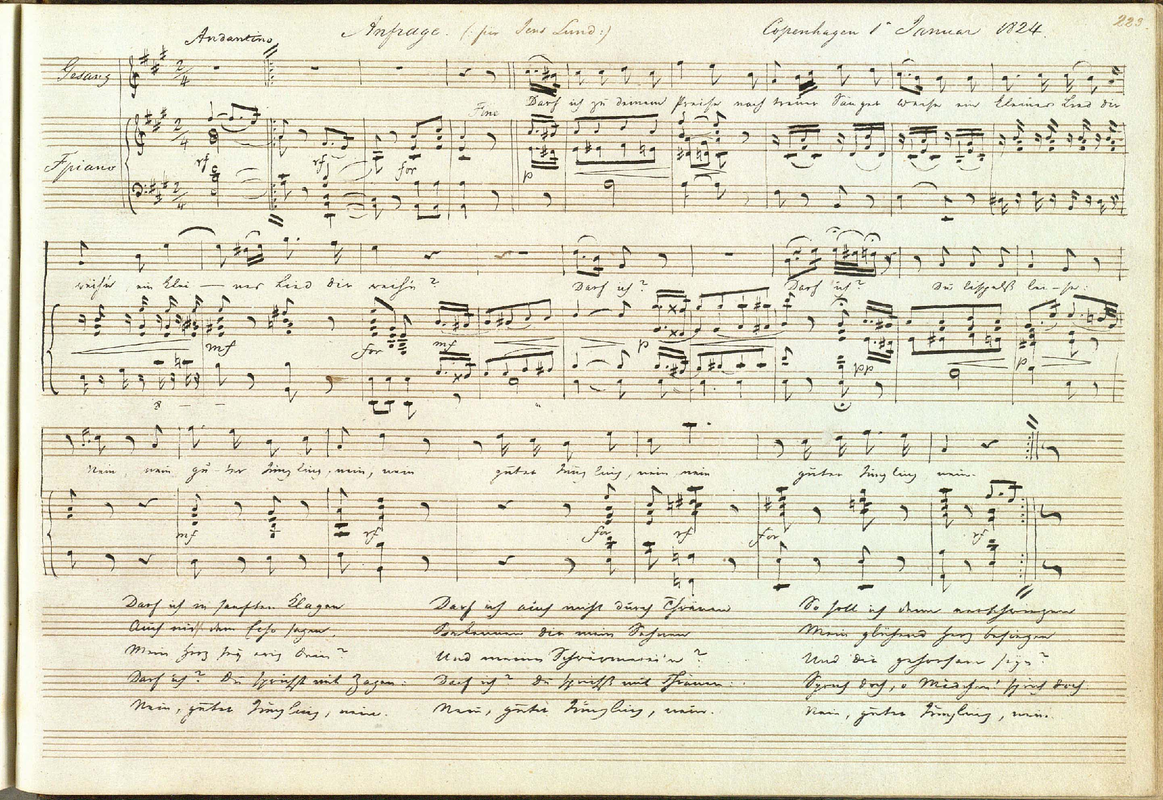 223
Andantino Anfrage. (: für Jens Lund :) Copenhagen 1 Januar 1824.
Gesang
Darf ich zu deinem Preise nach treuer Sänger Weise ein kleines Lied dir
Fine
Fpiano
rf rf for p
weih'n ein klei — nes Lied dir weih'n? Darf ich? Darf ich? Du lispelst lei-se:
mf for mf p pp p
Nein nein gu-ter Jüngling, nein, nein guter Jüngling, nein nein guter Jüngling nein.
mf rf for rf for rf
Darf ich in sanften Klagen
Auch nicht dem Echo sagen,
Mein Herz sey ewig Dein?
Darf ich? Du sprichst mit Zagen:
Nein, guter Jüngling, nein.
Darf ich auch nicht durch Thränen
Bekennen dir mein Sehnen
Und meine Schwärmerei'n?
Darf ich? Du sprichst mit Thränen:
Nein, guter Jüngling, nein.
So soll ich denn verschweigen
Mein glühend Herz besiegen
Und dir gehorsam seyn?
Sprich doch, o Mädchen! sprich doch
Nein, guter Jüngling, nein.